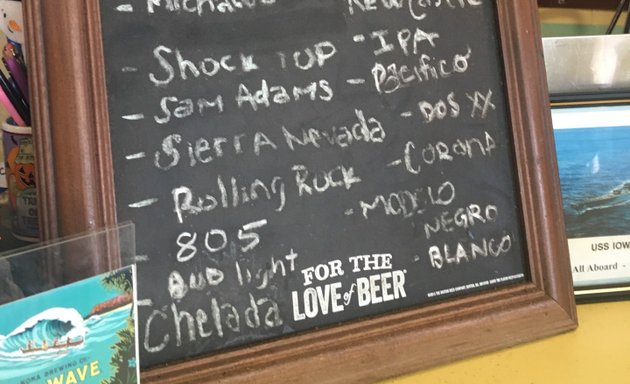 - Shock Top
- Sam Adams
- Sierra Nevada
- Rolling Rock
- 805
Bud light
Chelada
NEWCastle
- IPA
- Pacifico
- DOS XX
- CORONA
- MODELO
NEGRO
- BLANCO
FOR THE
LOVE of BEER
KONA BREWING CO.
WAVE
USS IOW
All Aboard -